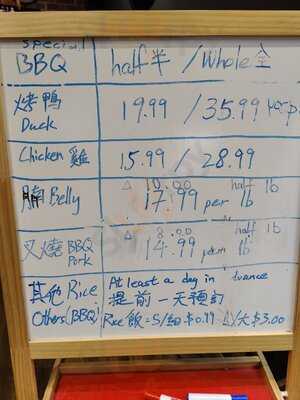 special
BBQ half半 / Whole全
烤鴨 Duck 19.99 / 35.99
Chicken 雞 15.99 / 28.99
腩Belly △ 10.00 half lb
17.99 per lb
叉燒 BBQ Pork △ 8.00 half lb
14.99 lb
其他 Rice At least a day in
提前一天預訂
Others(BBQ) Rice飯=S/細$0.99 L/大$3.00